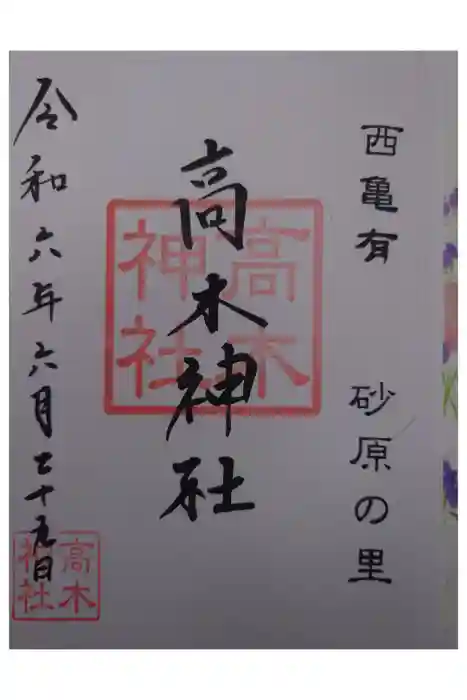 西亀有 砂原の里
高木神社
高木
神社
令和六年六月二十九日
高木
神社